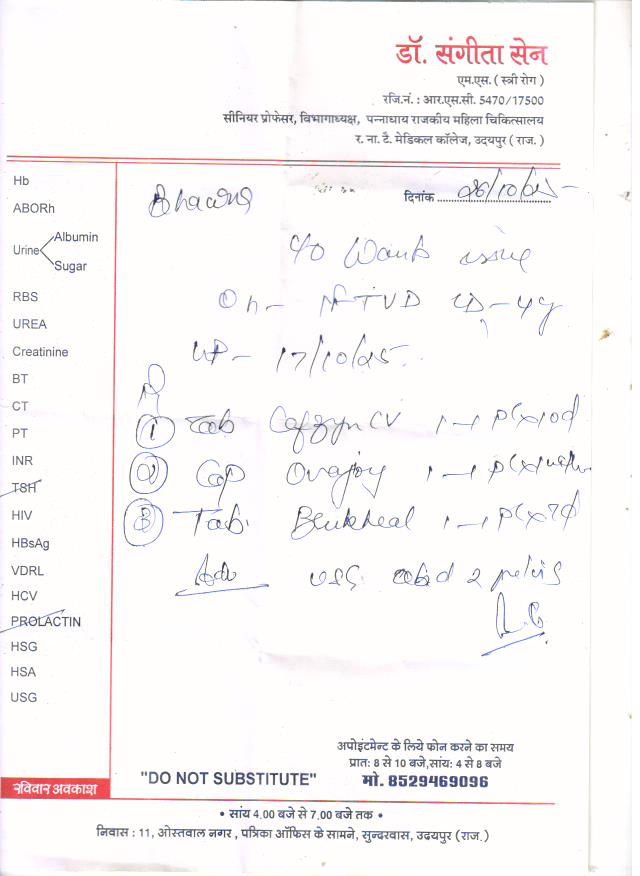 डॉ. संगीता सेन
एम.एस. ( स्त्री रोग )
रजि.नं. : आर.एस.सी. 5470/17500
सीनियर प्रोफेसर, विभागाध्यक्ष, पन्नाधाय राजकीय महिला चिकित्सालय
र. ना. टै. मेडिकल कॉलेज, उदयपुर ( राज. )
दिनांक 26/10/25
Hb
ABORh
Urine Albumin
Sugar
RBS
UREA
Creatinine
BT
CT
PT
INR
TSH
HIV
HBsAg
VDRL
HCV
PROLACTIN
HSG
HSA
USG
रविवार अवकाश
c/o Wants issue
17/10/25
1 Tab CV 1-1
2 Cap Ovajoy 1-1
3 Tab. 1-1
Adv USG
अपोइंटमेन्ट के लिये फोन करने का समय
प्रात: 8 से 10 बजे,सांय: 4 से 8 बजे
"DO NOT SUBSTITUTE" मो. 8529469096
• सांय 4.00 बजे से 7.00 बजे तक •
निवास : 11, ओस्तवाल नगर , पत्रिका ऑफिस के सामने, सुन्दरवास, उदयपुर (राज.)